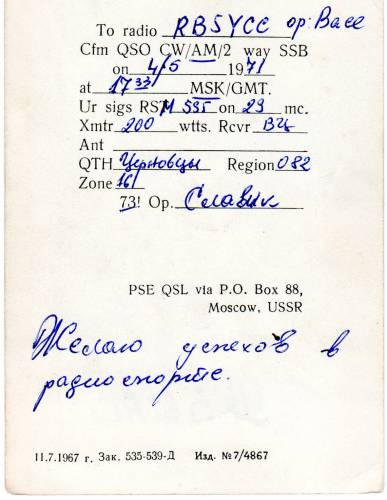 To radio RB5YCC ор: Васе
Cfm QSO CW/AM/2 way SSB
on 4/5 1971
at 17 33 MSK/GMT.
Ur sigs RST M 595 on 29 mc.
Xmtr 200 wtts. Rcvr
Ant
QTH Черновцы Region 082
Zone 16
73! Op. Славик
PSE QSL via P.O. Box 88,
Moscow, USSR
Желаю успехов в
радиоспорте.
11.7.1967 г. Зак. 535-539-Д Изд. №7/4867